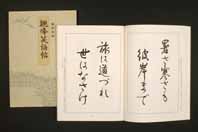 暑さ寒さも
彼岸まで
旅は道づれ
世はなさけ